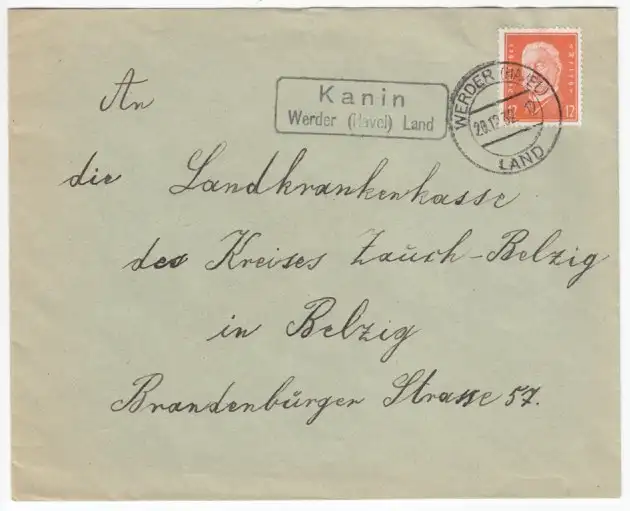 Kanin
Werder (Havel) Land
WERDER (HAVEL)
LAND
12 12
An
die Landkrankenkasse
des Kreises Zauch-Belzig
in Belzig
Brandenburger Strasse 57.